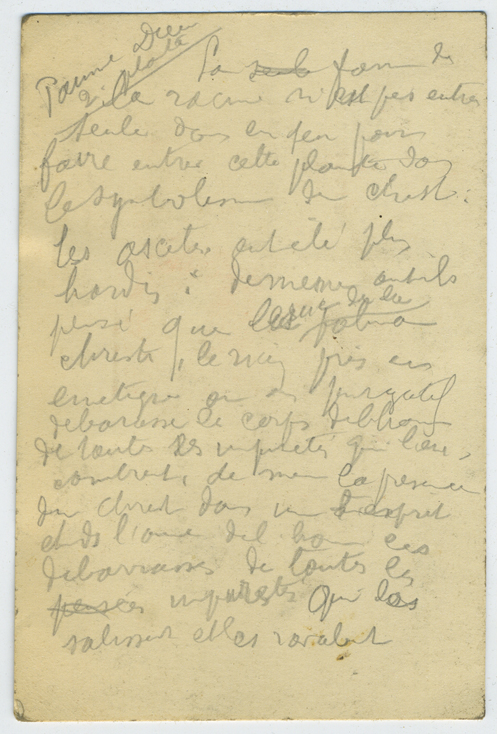 Paume Dieu
La seule forme de
la racine n'est pas entrée
seule dans en jeu pour
faire entrer cette plante dans
le symbolisme du christ :
les ascètes ont été plus
hardis : de meme ont ils
pensé que le suc de la
christ, le suc pris en
emetique ou en purgatif
debarasse le corps de l'homme
de toutes les impuretés qui l'en-
combrent, de meme la presence
du Christ dans l'esprit
et ds l'ame de l'homme les
debarrasse de toutes les
pensées impuretés qui les
salissent et les ravalent